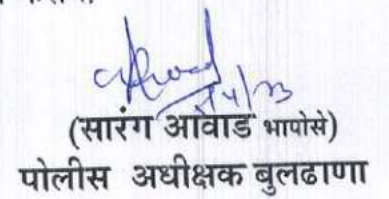 (सारंग आवाड भापोसे)
पोलीस अधीक्षक बुलढाणा